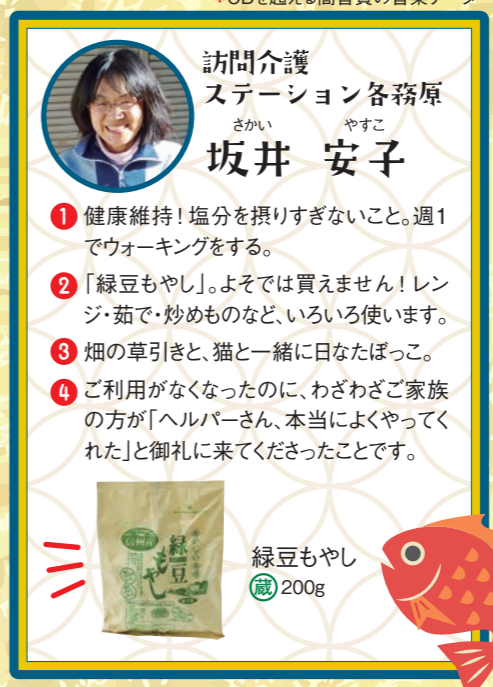 訪問介護
ステーション各務原
さかい やすこ
坂井 安子
1 健康維持！塩分を摂りすぎないこと。週1
でウォーキングをする。
2 「緑豆もやし」。よそでは買えません！レン
ジ・茹で・炒めものなど、いろいろ使います。
3 畑の草引きと、猫と一緒に日なたぼっこ。
4 ご利用がなくなったのに、わざわざご家族
の方が「ヘルパーさん、本当によくやってく
れた」と御礼に来てくださったことです。
緑豆
もやし
緑豆もやし
蔵 200g